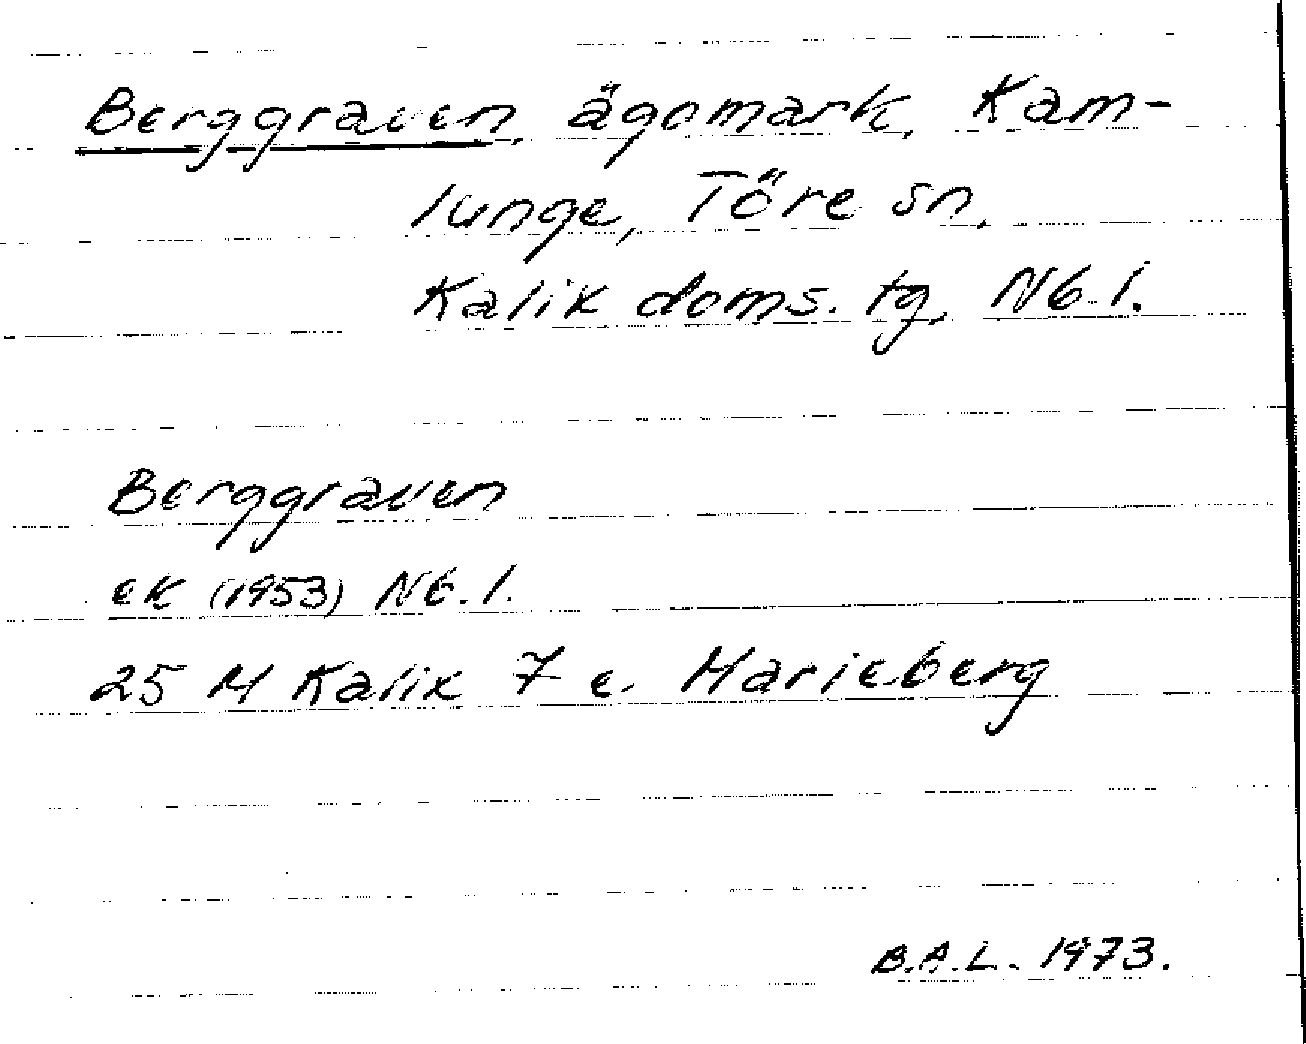 Berggraven, ägomark, Kam-
lunge, Töre sn.
Kalix doms. tg, Nb. l.
Berggraven
ek (1953) Nb. l.
25 M Kalix 7 e. Marieberg
B.A.L. 1973.